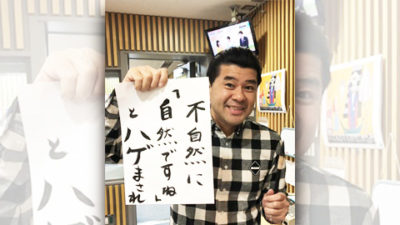 不自然に
「自然ですね」
とハゲまされ